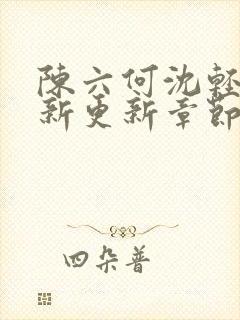 陳六何沈輕
新更新章節
四朵普